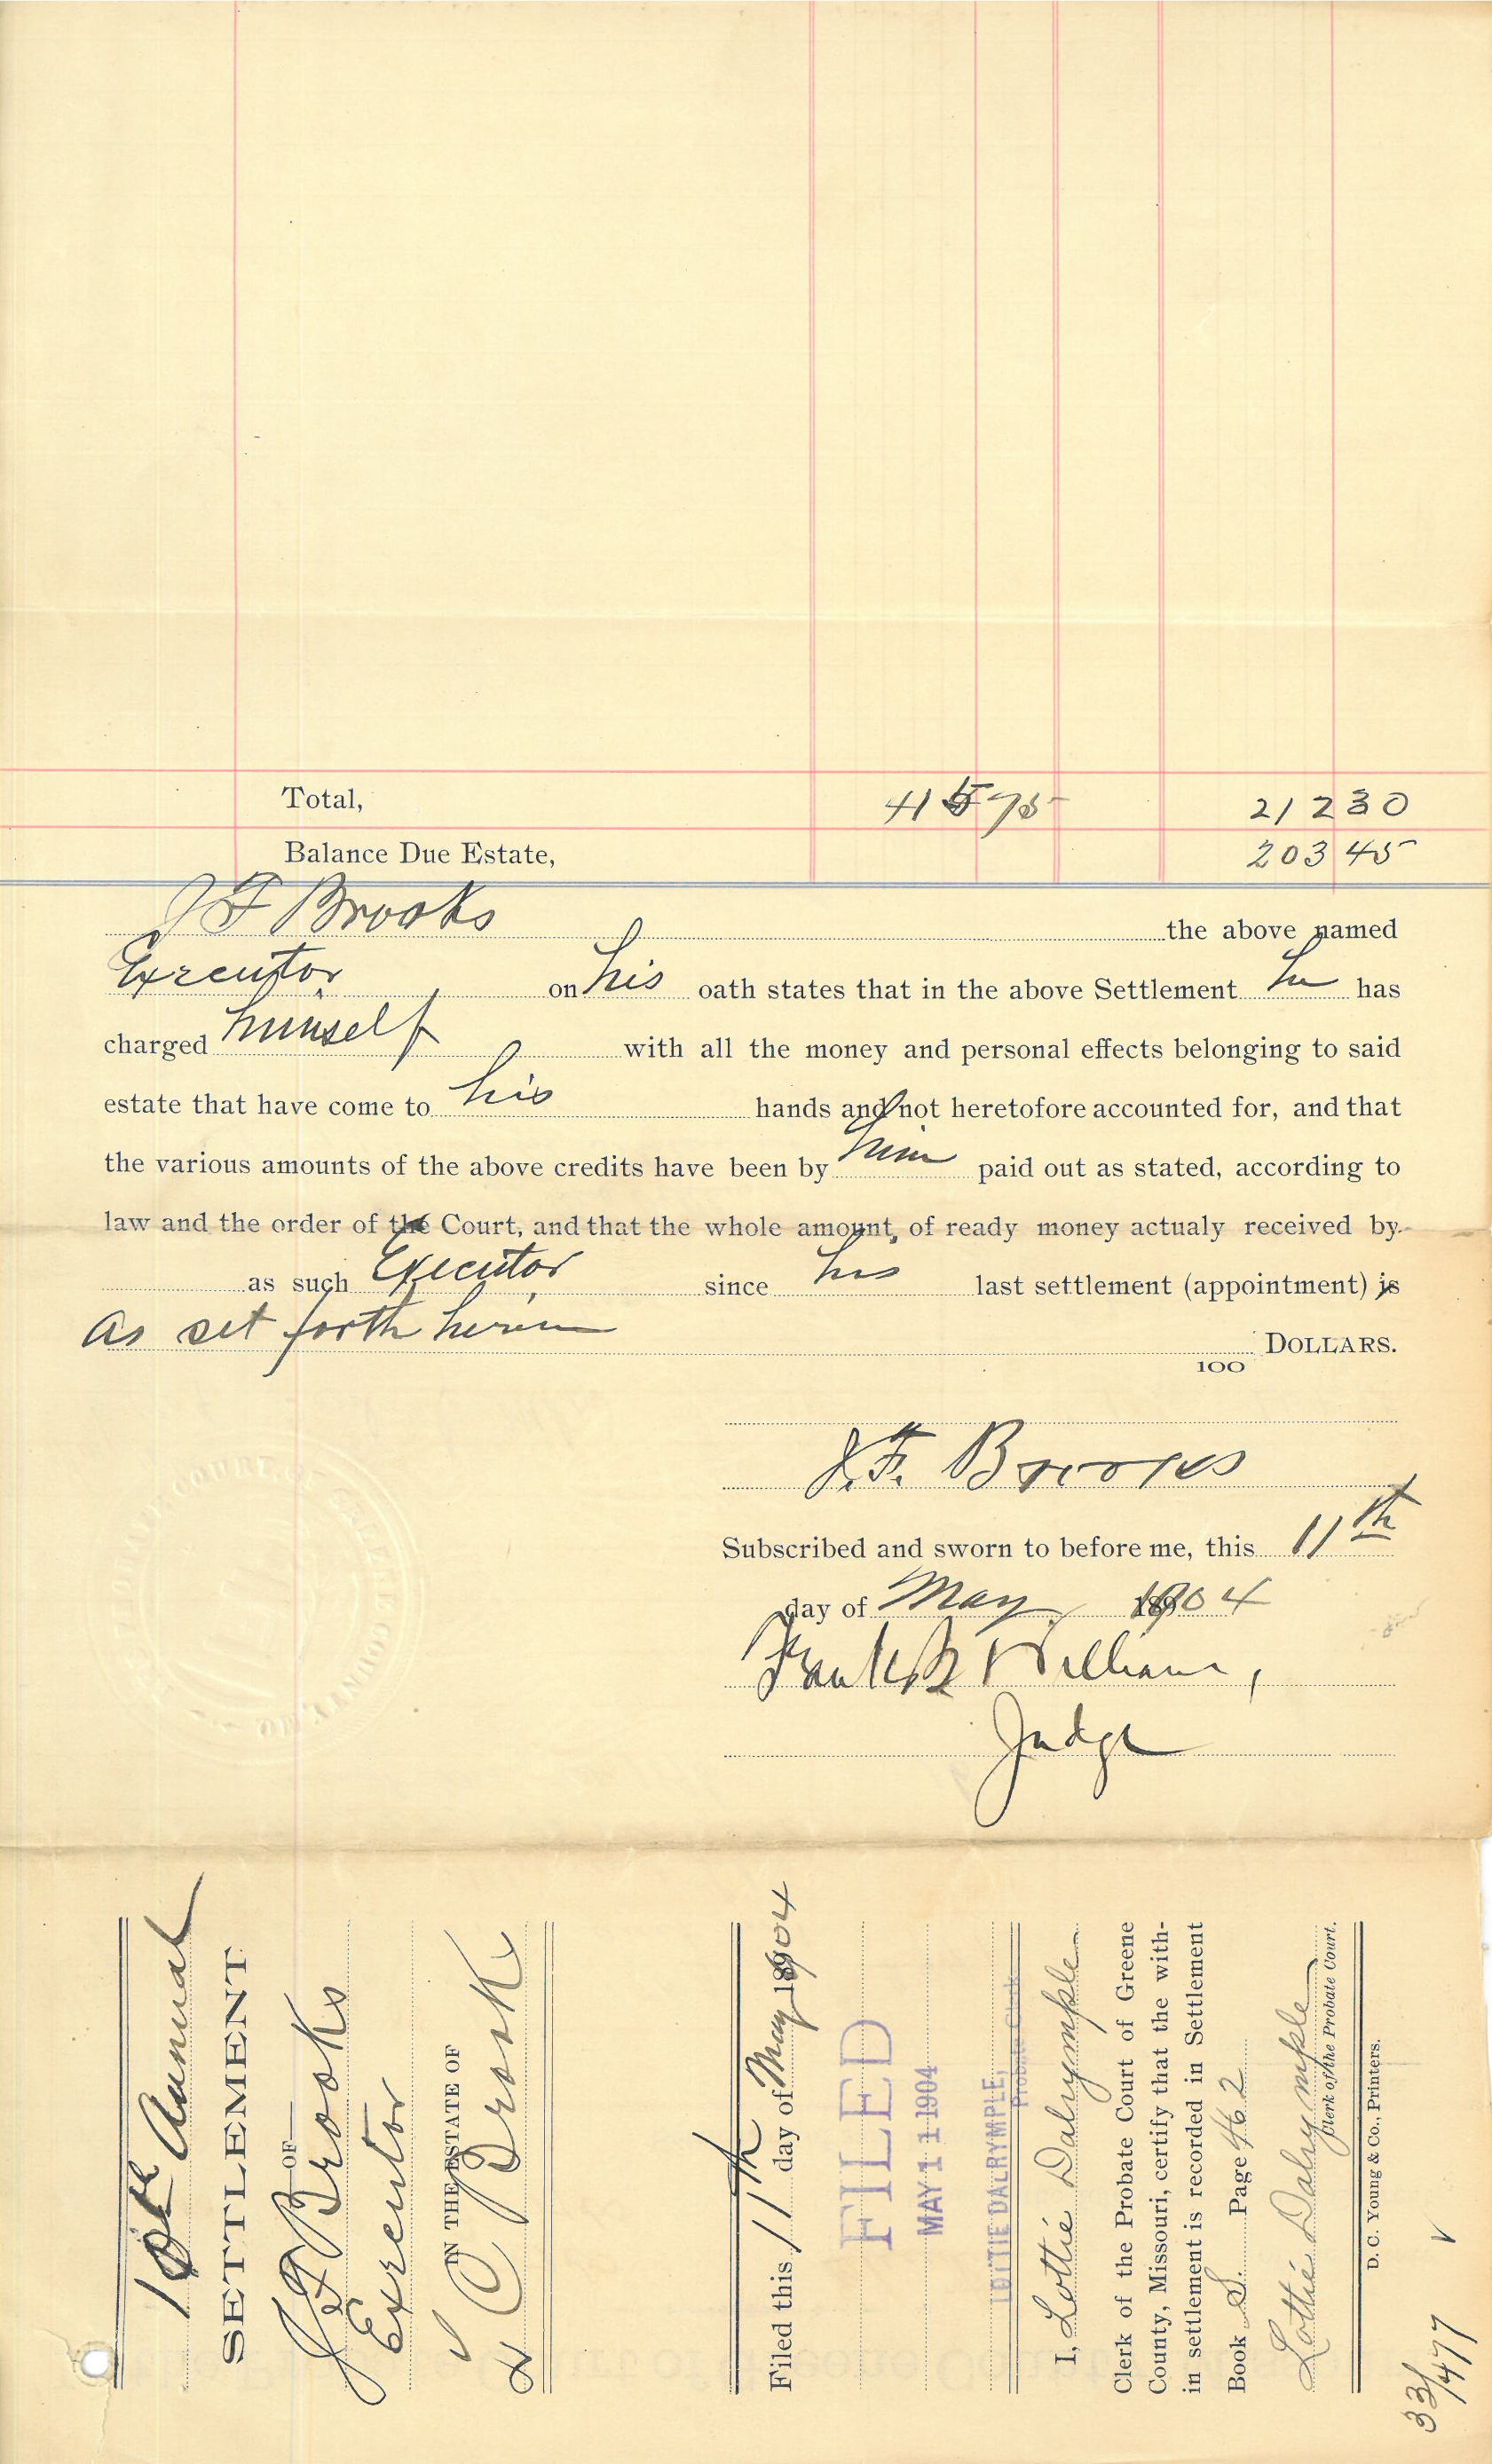 Total, 415 75 212 30
Balance Due Estate, 203 45
J F Brooks the above named
Executor on his oath states that in the above Settlement he has
charged himself with all the money and personal effects belonging to said
estate that have come to his hands and not heretofore accounted for, and that
the various amounts of the above credits have been by him paid out as stated, according to
law and the order of the Court, and that the whole amount, of ready money actualy received by
as such Executor since his last settlement (appointment) is
as set forth herein
100 DOLLARS.
J. F. Brooks
Subscribed and sworn to before me, this 11th
day of May 1904
Frank B Williams,
Judge
COURT OF GREENE COUNTY, MO.
Annual
SETTLEMENT
OF
J F Brooks
Executor
IN THE ESTATE OF
Filed this 11th day of May 1904
FILED
MAY 11 1904
LOTTIE DALRYMPLE,
Probate Clerk
I, Lottie Dalrymple
Clerk of the Probate Court of Greene
County, Missouri, certify that the with-
in settlement is recorded in Settlement
Book S. Page 462
Lottie Dalrymple
Clerk of the Probate Court.
D. C. Young & Co., Printers.
33/477